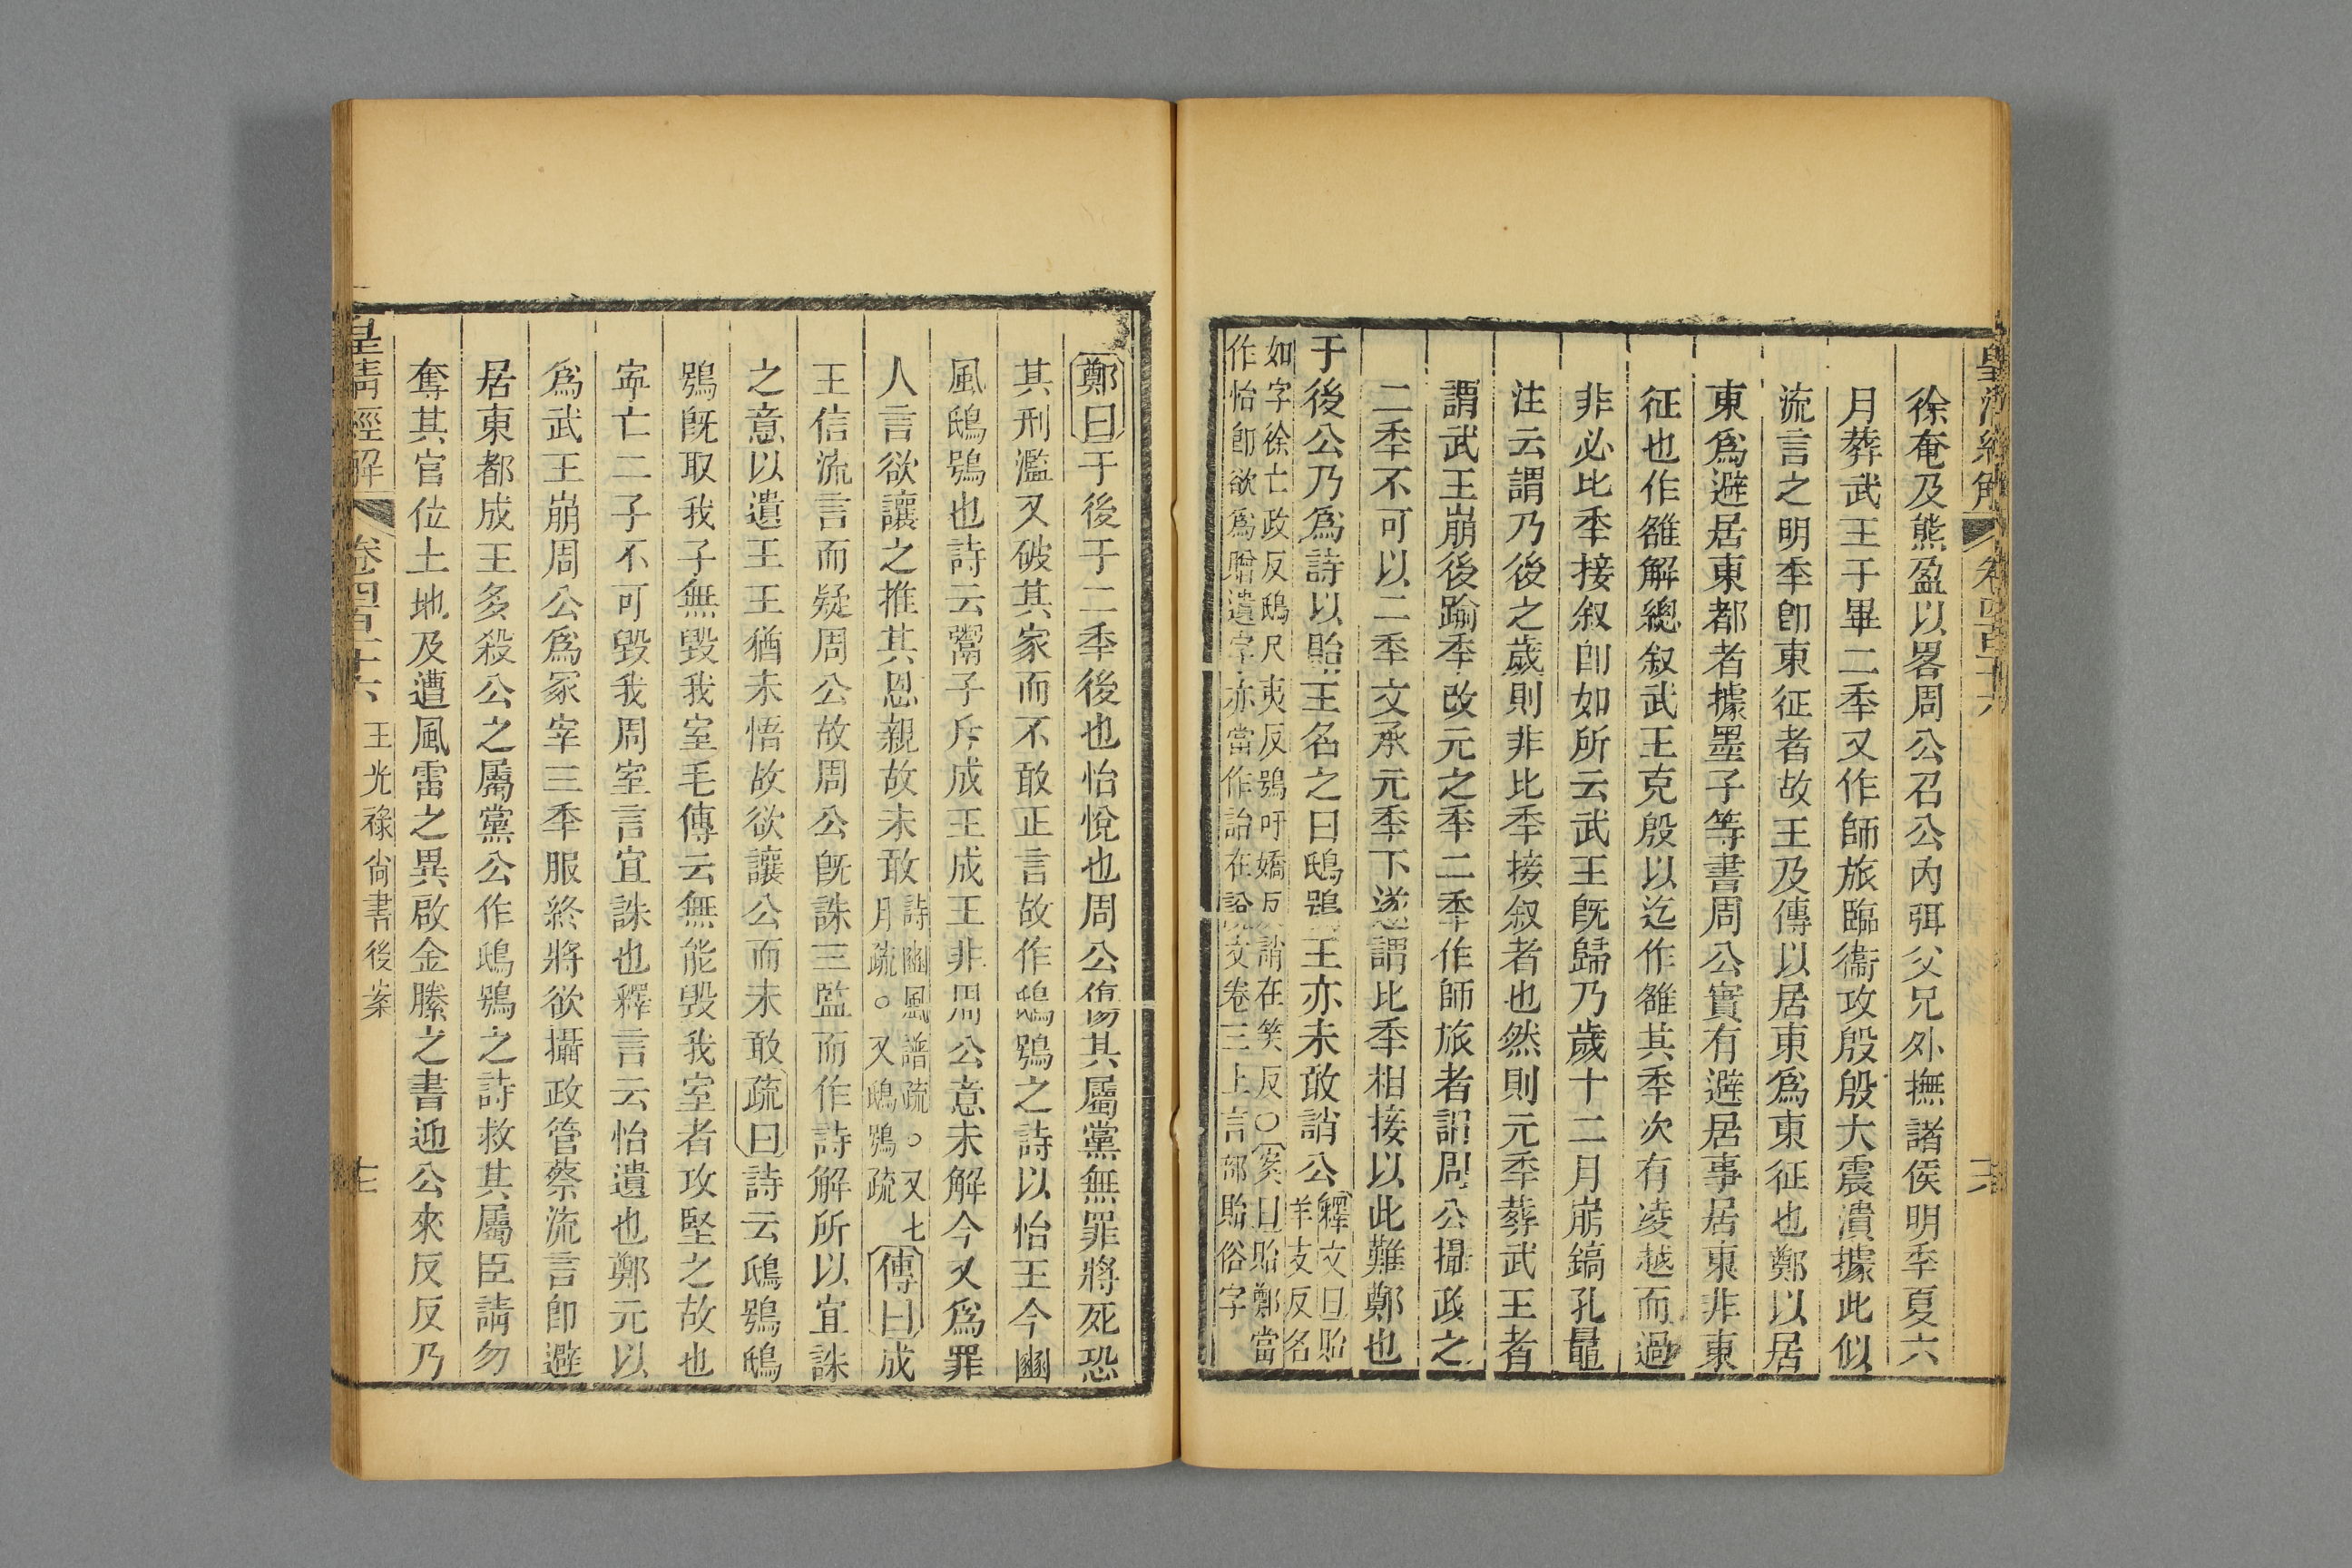 徐奄及熊盈以畧周公召公內弭父兄外撫諸侯明秊夏六
月葬武王于畢二秊又作師旅臨衞攻殷殷大震潰據此似
流言之明秊卽東征者故王及傳以居東爲東征也鄭以居
東爲避居東都者據墨子等書周公實有避居事居東非東
征也作雒解總叙武王克殷以迄作雒其秊次有凌越而過
非必比秊接叙卽如所云武王旣歸乃歲十二月崩鎬孔鼂
注云謂乃後之歲則非比秊接叙者也然則元秊葬武王者
謂武王崩後踰秊改元之秊二秊作師旅者謂周公攝政之
二秊不可以二秊文承元秊下遂謂比秊相接以此難鄭也
于後公乃爲詩以貽王名之曰鴟鴞王亦未敢誚公
釋文曰貽
羊支反名
如字徐亡政反鴟尺夷反鴞吁嬌反誚在笑反○案曰貽鄭當
作怡卽欲爲贈遺字亦當作詒在說文卷三上言部貽俗字
鄭曰于後于二秊後也怡悅也周公傷其屬黨無罪將死恐
其刑濫又破其家而不敢正言故作鴟鴞之詩以怡王今豳
風鴟鴞也詩云鬻子斥成王成王非周公意未解今又爲罪
人言欲讓之推其恩親故未敢
詩豳風譜疏○又七
月疏○又鴟鴞疏
傳曰成
王信流言而疑周公故周公旣誅三監而作詩解所以宜誅
之意以遺王王猶未悟故欲讓公而未敢疏曰詩云鴟鴞鴟
鴞旣取我子無毀我室毛傳云無能毀我室者攻堅之故也
寧亡二子不可毀我周室言宜誅也釋言云怡遺也鄭元以
爲武王崩周公爲冢宰三秊服終將欲攝政管蔡流言卽避
居東都成王多殺公之屬黨公作鴟鴞之詩救其屬臣請勿
奪其官位土地及遭風雷之異啟金縢之書迎公來反反乃
皇淸經解 卷四百十六 王光祿尙書後案 十七